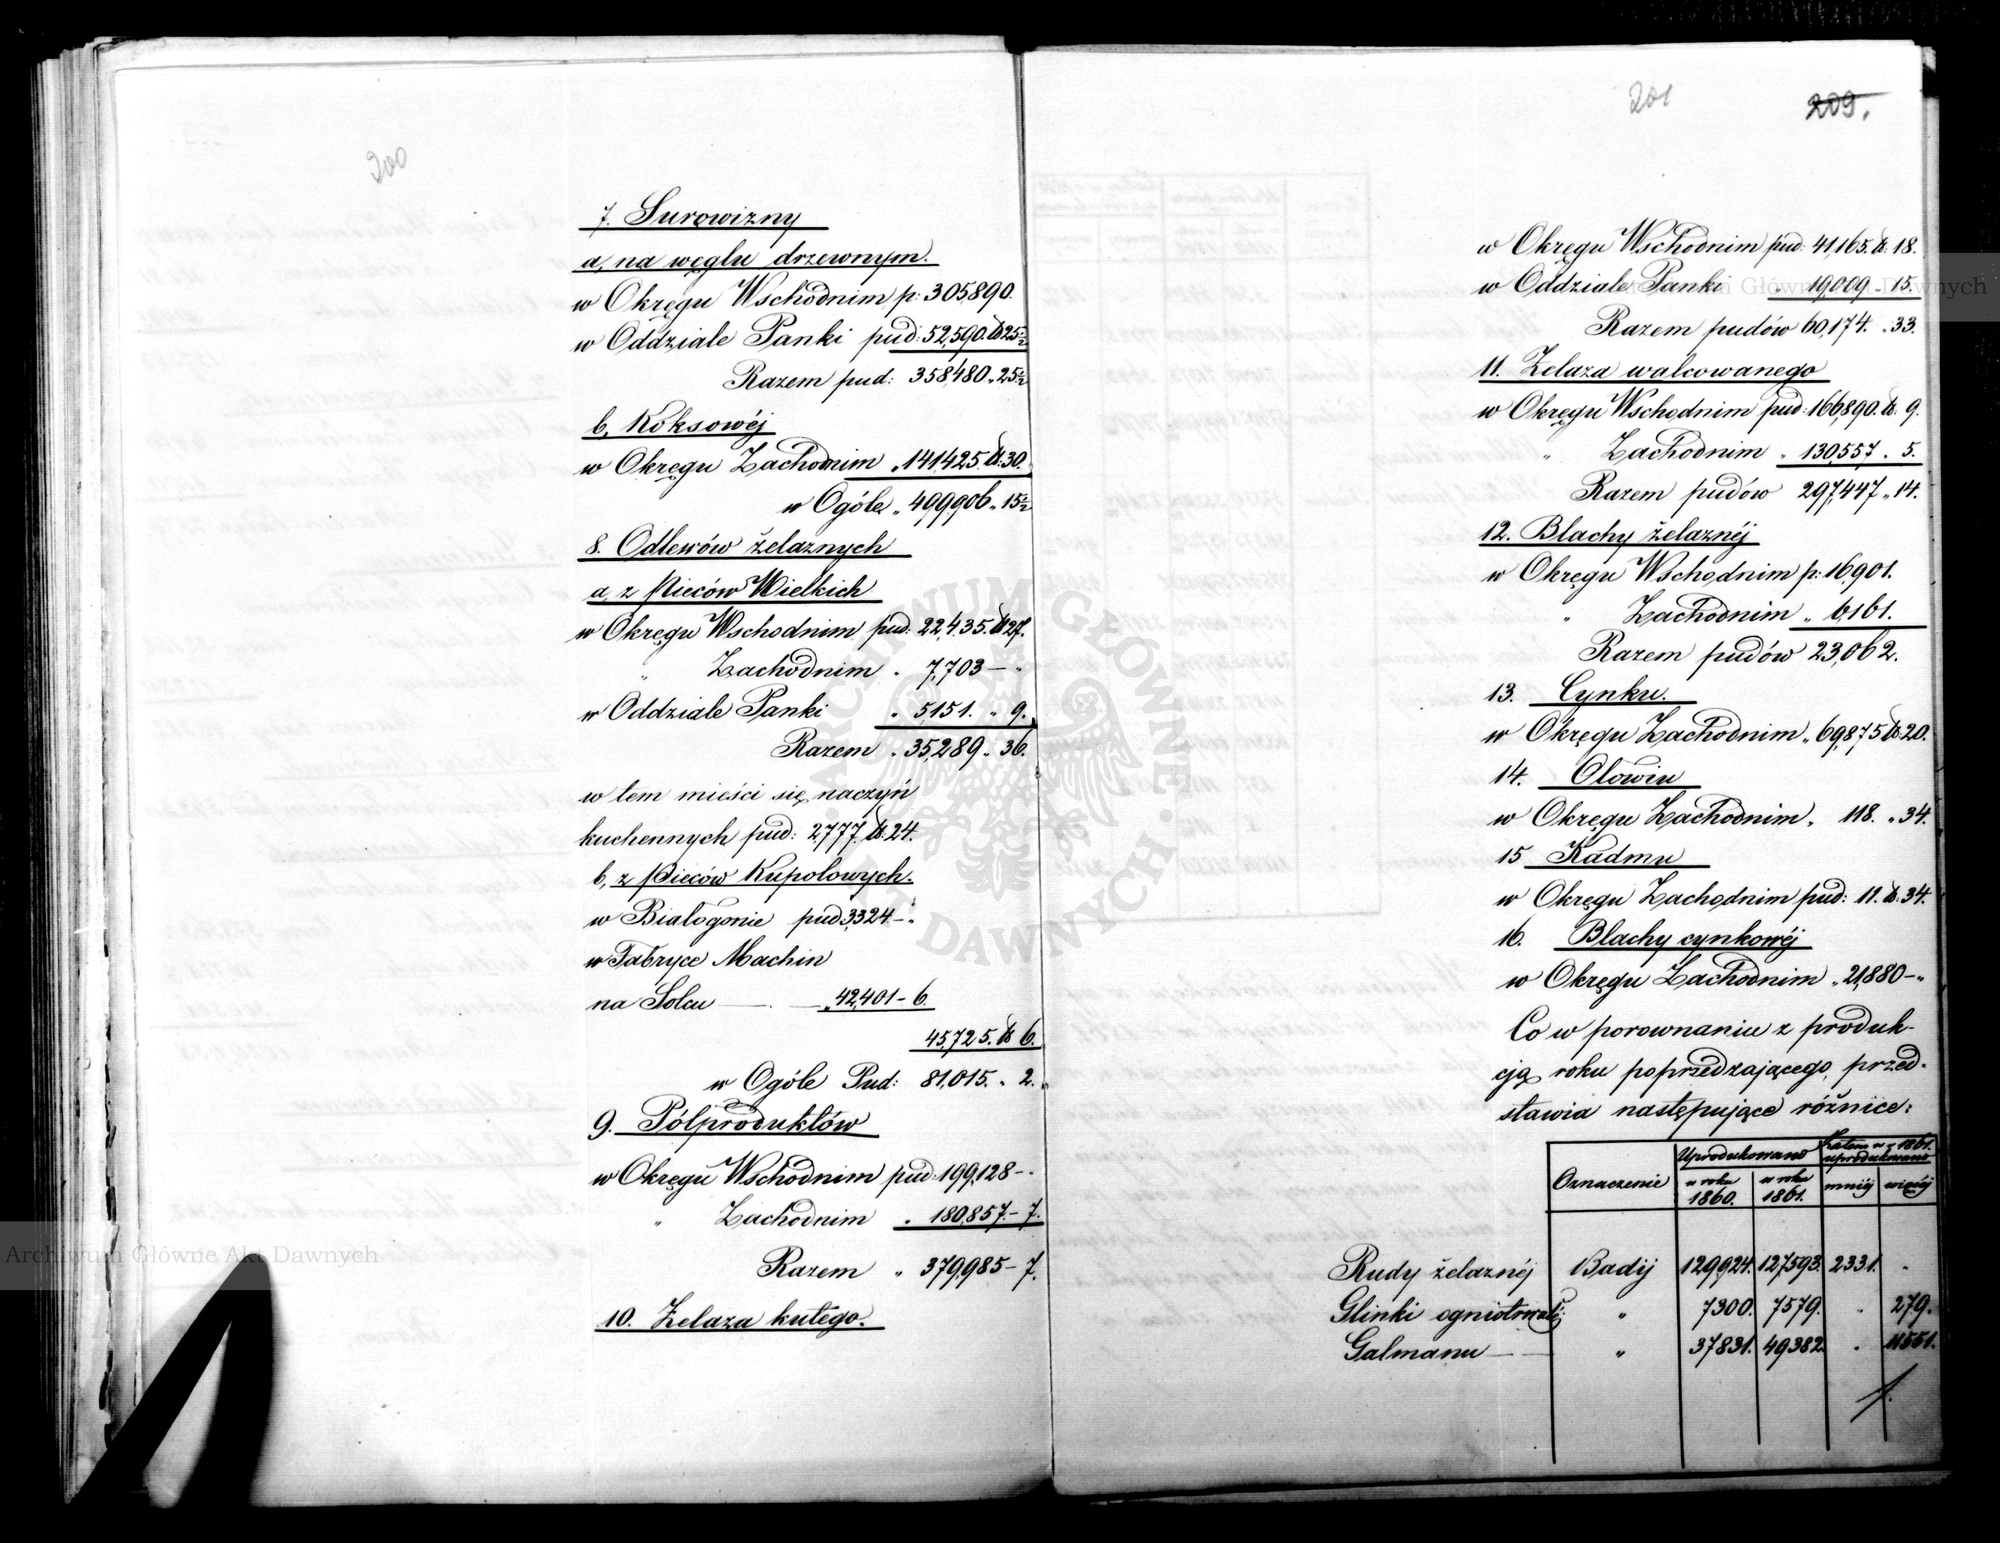 200
7. Surowizny
a, na węglu drzewnym.
w Okręgu Wschodnim p: 305890.
w Oddziale Panki pud: 52,590. ℔ 25½
Razem pud: 358,480 „ 25½
b, Koksowéj
w Okręgu Zachodnim „ 141,425. ℔ 30.
w Ogóle „ 499,906 „ 15½
8. Odlewów żelaznych
a, z Pieców Wielkich
w Okręgu Wschodnim pud: 22,435. ℔ 27.
„ Zachodnim „ 7,703 — „
w Oddziale Panki „ 5151. „ 9.
Razem „ 35,289 „ 36.
w tem mieści się naczyń
kuchennych pud: 2,777. ℔ 24.
b, z Pieców Kupolowych.
w Białogonie pud 3,324 — „
w Fabryce Machin
na Solcu — . — „ 42,401 — 6.
45,725. ℔ 6.
w Ogóle Pud: 81,015. „ 2.
9. Półproduktów
w Okręgu Wschodnim pud: 199,128 — „
„ Zachodnim „ 180,857. — 7.
Razem „ 379,985 — 7.
10. Żelaza kutego.
201 209.
w Okręgu Wschodnim pud: 41,165. ℔ 18.
w Oddziale Panki „ 19,009 „ 15.
Razem pudów 60,174. „ 33.
11. Żelaza walcowanego
w Okręgu Wschodnim pud: 166,890. ℔ 9.
„ Zachodnim „ 130,557 „ 5.
Razem pudów 297,447 „ 14.
12. Blachy żelaznéj
w Okręgu Wschodnim p: 16,901.
„ Zachodnim „ 6,161.
Razem pudów 23,062.
13. Cynku.
w Okręgu Zachodnim „ 69,875 ℔ 20.
14. Ołowiu
w Okręgu Zachodnim „ 118. „ 34.
15 Kadmu
w Okręgu Zachodnim pud: 11. ℔ 34.
16. Blachy cynkowéj
w Okręgu Zachodnim „ 21,880 — „
Co w porownaniu z produk-
cją roku poprzedzającego, przed-
stawia następujące różnice:
Oznaczenie Uprodukowano Zatem w r 1861. uprodukowano
w roku 1860. w roku 1861. mniéj więcéj
Rudy żelaznéj Badij 129,924. 127,593. 2331. „
Glinki ogniotrwałéj „ 7300. 7579. „ 279.
Galmanu — — „ 37831. 49382. „ 11551.
Archiwum Główne Akt Dawnych
ARCHIWUM GŁÓWNE AKT DAWNYCH
Archiwum Główne Akt Dawnych